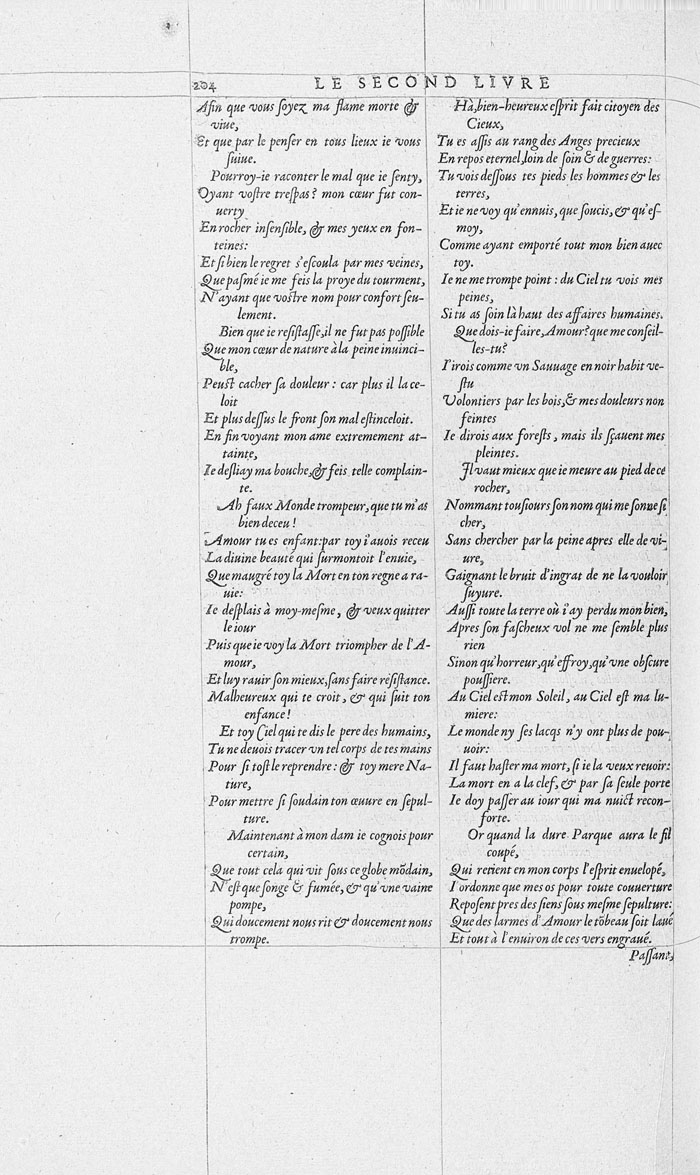 204
LE SECOND LIVRE
Afin que vous ſoyez ma flame morte &
viue,
Et que par le penſer en tous lieux ie vous
ſuiue.
Pourroy-ie raconter le mal que ie ſenty,
Oyant voſtre treſpas? mon cœur fut con-
uerty
En rocher inſenſible, & mes yeux en fon-
teines:
Et ſi bien le regret s'eſcoula par mes veines,
Que paſmé ie me feis la proye du tourment,
N'ayant que voſtre nom pour confort ſeu-
lement.
Bien que ie reſiſtaſſe, il ne fut pas poſſible
Que mon cœur de nature à la peine inuinci-
ble,
Peuſt cacher ſa douleur : car plus il la ce-
loit
Et plus deſſus le front ſon mal eſtinceloit.
En fin voyant mon ame extremement at-
tainte,
Ie deſliay ma bouche, & feis telle complain-
te.
Ah faux Monde trompeur, que tu m'as
bien deceu !
Amour tu es enfant: par toy i'auois receu
La diuine beauté qui ſurmontoit l'enuie,
Que maugré toy la Mort en ton regne a ra-
uie:
Ie deſplais à moy-meſme, & veux quitter
le iour
Puis que ie voy la Mort triompher de l'A-
mour,
Et luy rauir ſon mieux, ſans faire reſiſtance.
Malheureux qui te croit, & qui ſuit ton
enfance !
Et toy Ciel qui te dis le pere des humains,
Tu ne deuois tracer vn tel corps de tes mains
Pour ſi toſt le reprendre : & toy mere Na-
ture,
Pour mettre ſi ſoudain ton œuure en ſepul-
ture.
Maintenant à mon dam ie cognois pour
certain,
Que tout cela qui vit ſous ce globe mõdain,
N'eſt que ſonge & fumée, & qu'vne vaine
pompe,
Qui doucement nous rit & doucement nous
trompe.
Hà, bien-heureux eſprit fait citoyen des
Cieux,
Tu es aſſis au rang des Anges precieux
En repos eternel, loin de ſoin & de guerres:
Tu vois deſſous tes pieds les hommes & les
terres,
Et ie ne voy qu'ennuis, que ſoucis, & qu'eſ-
moy,
Comme ayant emporté tout mon bien auec
toy.
Ie ne me trompe point : du Ciel tu vois mes
peines,
Si tu as ſoin là haut des affaires humaines.
Que dois-ie faire, Amour? que me conſeil-
les-tu?
I'irois comme vn Sauuage en noir habit ve-
ſtu
Volontiers par les bois, & mes douleurs non
feintes
Ie dirois aux foreſts, mais ils ſçauent mes
pleintes.
Il vaut mieux que ie meure au pied de ce
rocher,
Nommant touſiours ſon nom qui me ſonne ſi
cher,
Sans chercher par la peine apres elle de vi-
ure,
Gaignant le bruit d'ingrat de ne la vouloir
ſuyure.
Auſſi toute la terre où i'ay perdu mon bien,
Apres ſon faſcheux vol ne me ſemble plus
rien
Sinon qu'horreur, qu'effroy, qu'vne obſcure
pouſſiere.
Au Ciel eſt mon Soleil, au Ciel eſt ma lu-
miere:
Le monde ny ſes lacqs n'y ont plus de pou-
uoir:
Il faut haſter ma mort, ſi ie la veux reuoir:
La mort en a la clef, & par ſa ſeule porte
Ie doy paſſer au iour qui ma nuict recon-
forte.
Or quand la dure Parque aura le fil
coupé,
Qui retient en mon corps l'eſprit enuelopé,
I'ordonne que mes os pour toute couuerture
Repoſent pres des ſiens ſous meſme ſepulture:
Que des larmes d'Amour le tõbeau ſoit laué
Et tout à l'enuiron de ces vers engraué.
Paſſant,